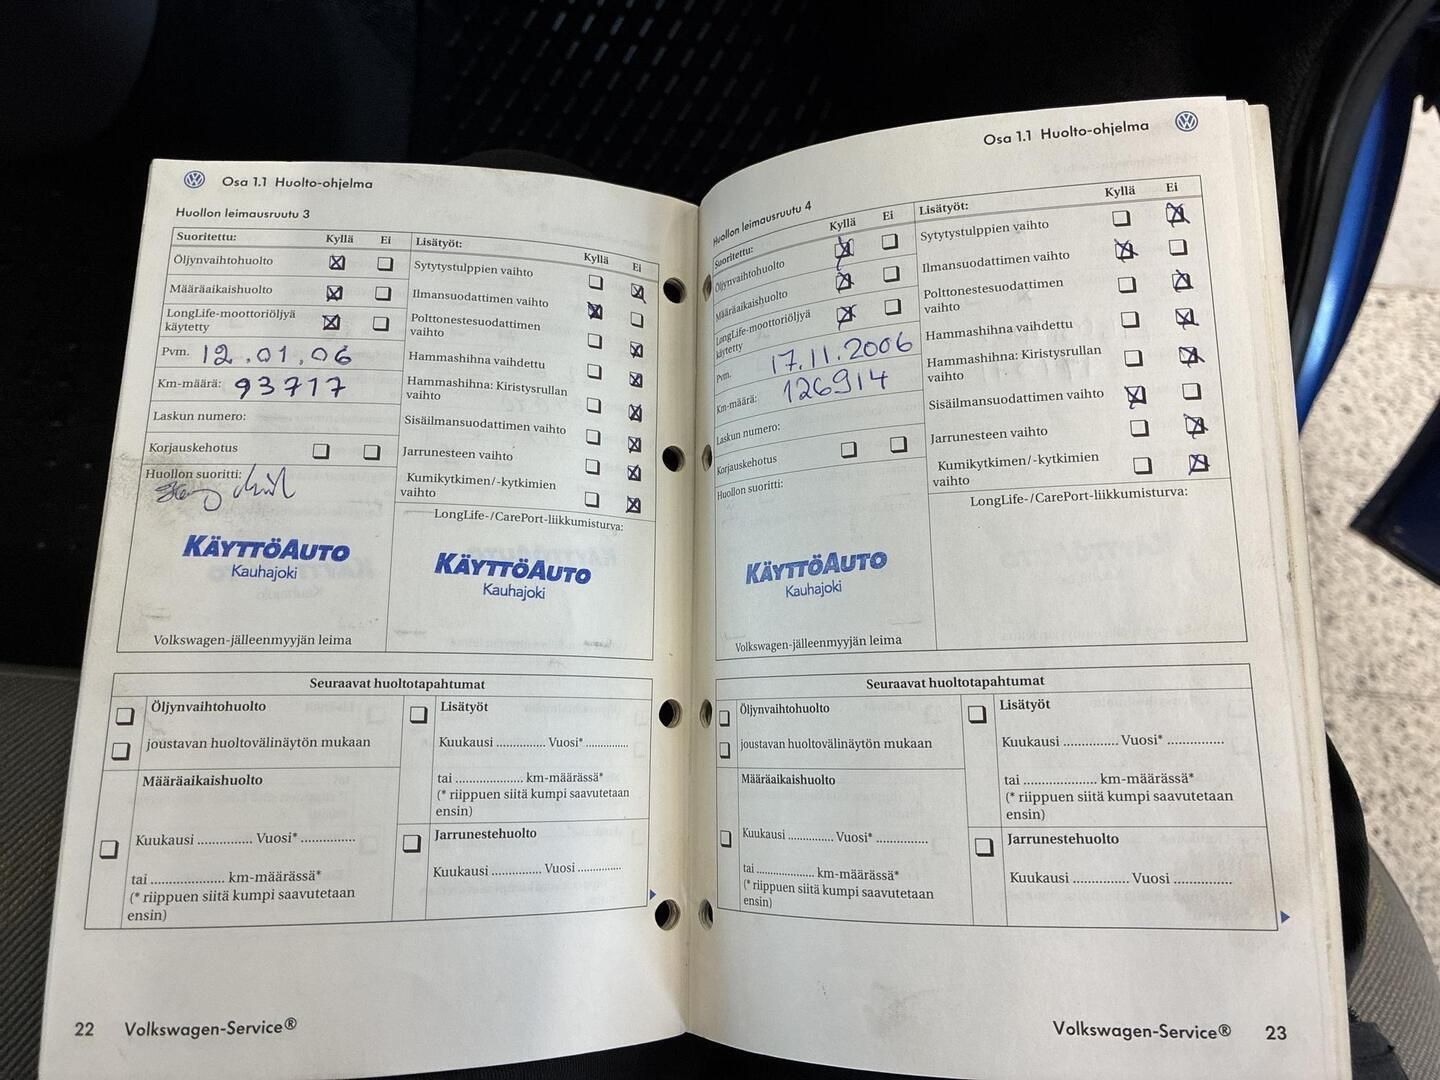 Osa 1.1 Huolto-ohjelma
Huollon leimausruutu 3
Suoritettu: Kyllä Ei
Öljynvaihtohuolto
Määräaikaishuolto
LongLife-moottoriöljyä
käytetty
Pvm. 12.01.06
Km-määrä: 93717
Laskun numero:
Korjauskehotus
Huollon suoritti:
KÄYTTÖAUTO
Kauhajoki
Volkswagen-jälleenmyyjän leima
Lisätyöt: Kyllä Ei
Sytytystulppien vaihto
Ilmansuodattimen vaihto
Polttonestesuodattimen
vaihto
Hammashihna vaihdettu
Hammashihna: Kiristysrullan
vaihto
Sisäilmansuodattimen vaihto
Jarrunesteen vaihto
Kumikytkimen/-kytkimien
vaihto
LongLife-/CarePort-liikkumisturva:
KÄYTTÖAUTO
Kauhajoki
Seuraavat huoltotapahtumat
Öljynvaihtohuolto
joustavan huoltovälinäytön mukaan
Määräaikaishuolto
Kuukausi .............. Vuosi* ..............
tai .................... km-määrässä*
(* riippuen siitä kumpi saavutetaan
ensin)
Lisätyöt
Kuukausi .............. Vuosi* ............
tai .................... km-määrässä*
(* riippuen siitä kumpi saavutetaan
ensin)
Jarrunestehuolto
Kuukausi .............. Vuosi ............
22 Volkswagen-Service®
Osa 1.1 Huolto-ohjelma
Huollon leimausruutu 4
Suoritettu: Kyllä Ei
Öljynvaihtohuolto
Määräaikaishuolto
LongLife-moottoriöljyä
käytetty
Pvm. 17.11.2006
Km-määrä: 126914
Laskun numero:
Korjauskehotus
Huollon suoritti:
KÄYTTÖAUTO
Kauhajoki
Volkswagen-jälleenmyyjän leima
Lisätyöt: Kyllä Ei
Sytytystulppien vaihto
Ilmansuodattimen vaihto
Polttonestesuodattimen
vaihto
Hammashihna vaihdettu
Hammashihna: Kiristysrullan
vaihto
Sisäilmansuodattimen vaihto
Jarrunesteen vaihto
Kumikytkimen/-kytkimien
vaihto
LongLife-/CarePort-liikkumisturva:
Seuraavat huoltotapahtumat
Öljynvaihtohuolto
joustavan huoltovälinäytön mukaan
Määräaikaishuolto
Kuukausi ............ Vuosi* ..............
tai ................. km-määrässä*
(* riippuen siitä kumpi saavutetaan
ensin)
Lisätyöt
Kuukausi .............. Vuosi* ...............
tai .................... km-määrässä*
(* riippuen siitä kumpi saavutetaan
ensin)
Jarrunestehuolto
Kuukausi .............. Vuosi ...............
Volkswagen-Service® 23